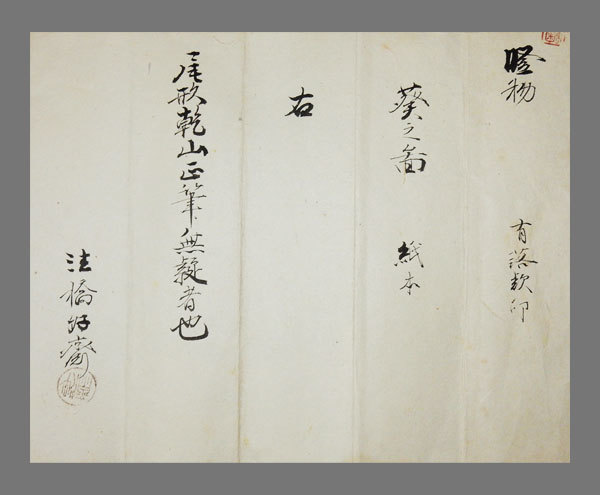 竪物 有落款印
葵之圖 紙本
右
尾形乾山正筆無疑者也
法橋好齋